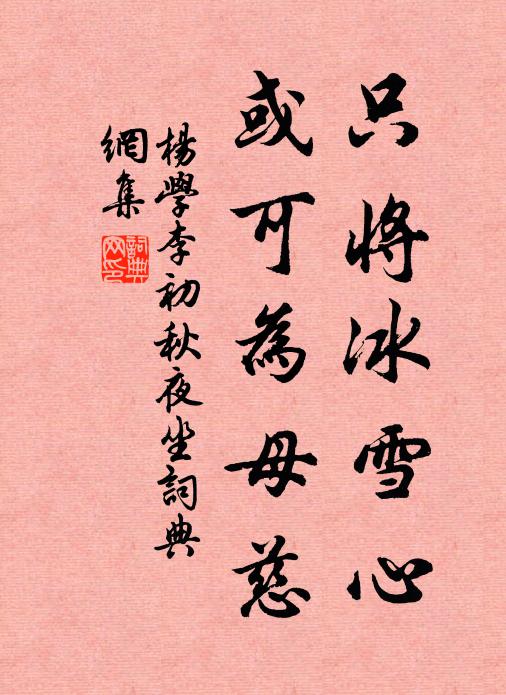 只將冰雪心
或可為母慈
楊學李初秋夜坐詞典
網集
詞典
网印